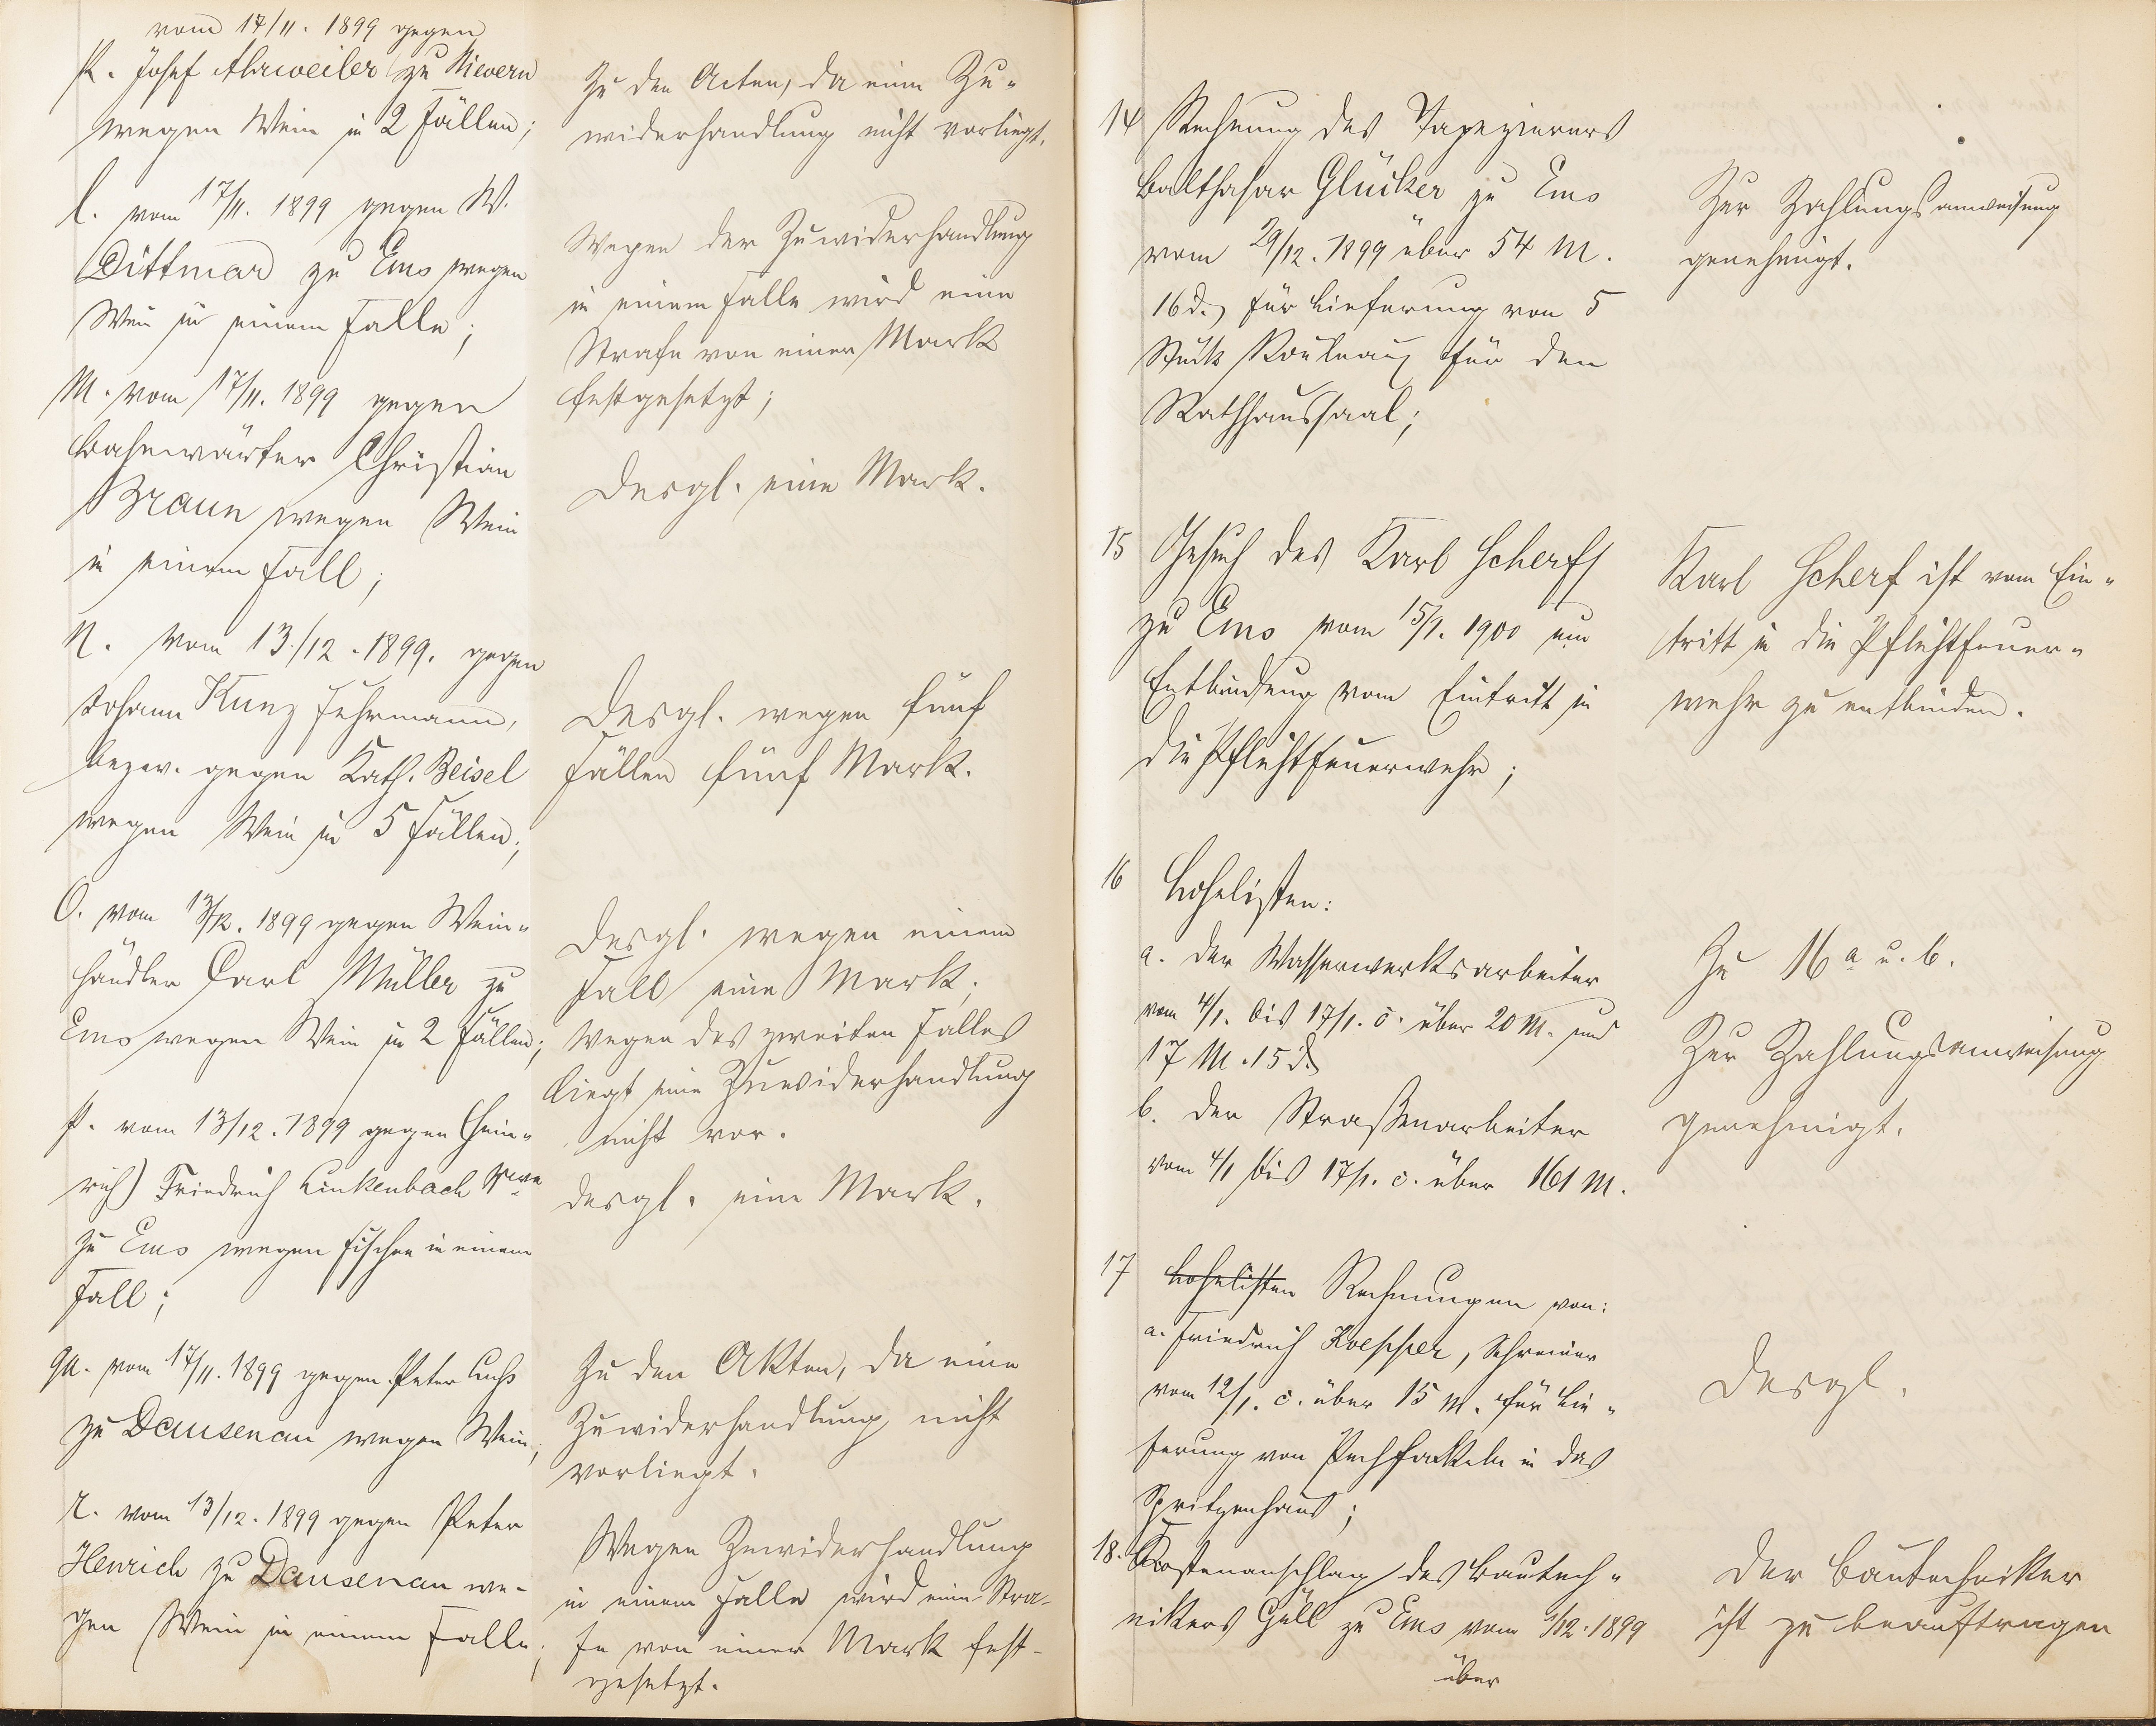 vom 17/11. 1899 gegen
k. Josef Ahrweiler zu Nievern
wegen Wein in 2 Fällen;
l. vom 17/11. 1899 gegen W.
Dittmar zu Ems wegen
Wein in einem Falle;
M. vom 17/11. 1899 gegen
Bahnwärter Christian
Braun wegen Wein
in einem Fall;
N. vom 13/12. 1899. gegen
Johann Kunz Fuhrmann,
bezw. gegen Kath. Beisel
wegen Wein in 5 Fällen;
O. vom 13/12. 1899 gegen Wein-
händler Carl Müller zu
Ems wegen Wein in 2 Fällen;
p. vom 13/12. 1899 gegen (Hein-
rich) Friedrich Linkenbach Wwe
zu Ems wegen Fischen in einem
Fall;
qu. vom 17/11. 1899 gegen Peter Luchs
zu Dausenau wegen Wein;
r. vom 13/12. 1899 gegen Peter
Henrich zu Dausenau we-
gen Wein in einem Falle;
Zu den Acten, da eine Zu-
widerhandlung nicht vorliegt.
Wegen der Zuwiderhandlung
in einem Falle wird eine
Strafe von einer Mark
festgesetzt;
Desgl. eine Mark.
Desgl. wegen fünf
Fällen fünf Mark.
Desgl. wegen einem
Fall eine Mark;
wegen des zweiten Falles
liegt eine Zuwiderhandlung
nicht vor.
desgl. eine Mark.
Zu den Akten, da eine
Zuwiderhandlung nicht
vorliegt.
Wegen Zuwiderhandlung
in einem Falle wird eine Stra-
fe von einer Mark fest-
gesetzt.
14 Rechnung des Tapezierers
Balthasar Glücker zu Ems
vom 29/12. 1899 über 54 M.
16 d. für Lieferung von 5
Stück Rouleaux für den
Rathhaussaal;
Zur Zahlungsanweisung
genehmigt.
15 Gesuch des Karl Scherf
zu Ems vom 15/1. 1900 um
Entbindung vom Eintritt in
die Pflichtfeuerwehr;
Karl Scherf ist vom Ein-
tritt in die Pflichtfeuer-
wehr zu entbinden.
16 Lohnlisten:
a. der Wasserwerksarbeiter
vom 4/1. bis 17/1. c. über 20 M. und
17 M. 15 d.
b. der Straßenarbeiter
vom 4/1 bis 17/1. c. über 161 M.
Zu 16 a u. b.
Zur Zahlungsanweisung
genehmigt.
17 Lohnlisten Rechnungen von:
a. Friedrich Koepper, Schreiner
vom 12/1. c. über 15 M. für Lie-
ferung von Pechfackeln in das
Spritzenhaus;
Desgl.
18. Kostenanschlag des Bautech-
nikers Güll zu Ems vom 1/12. 1899
über
Der Bautechniker
ist zu beauftragen